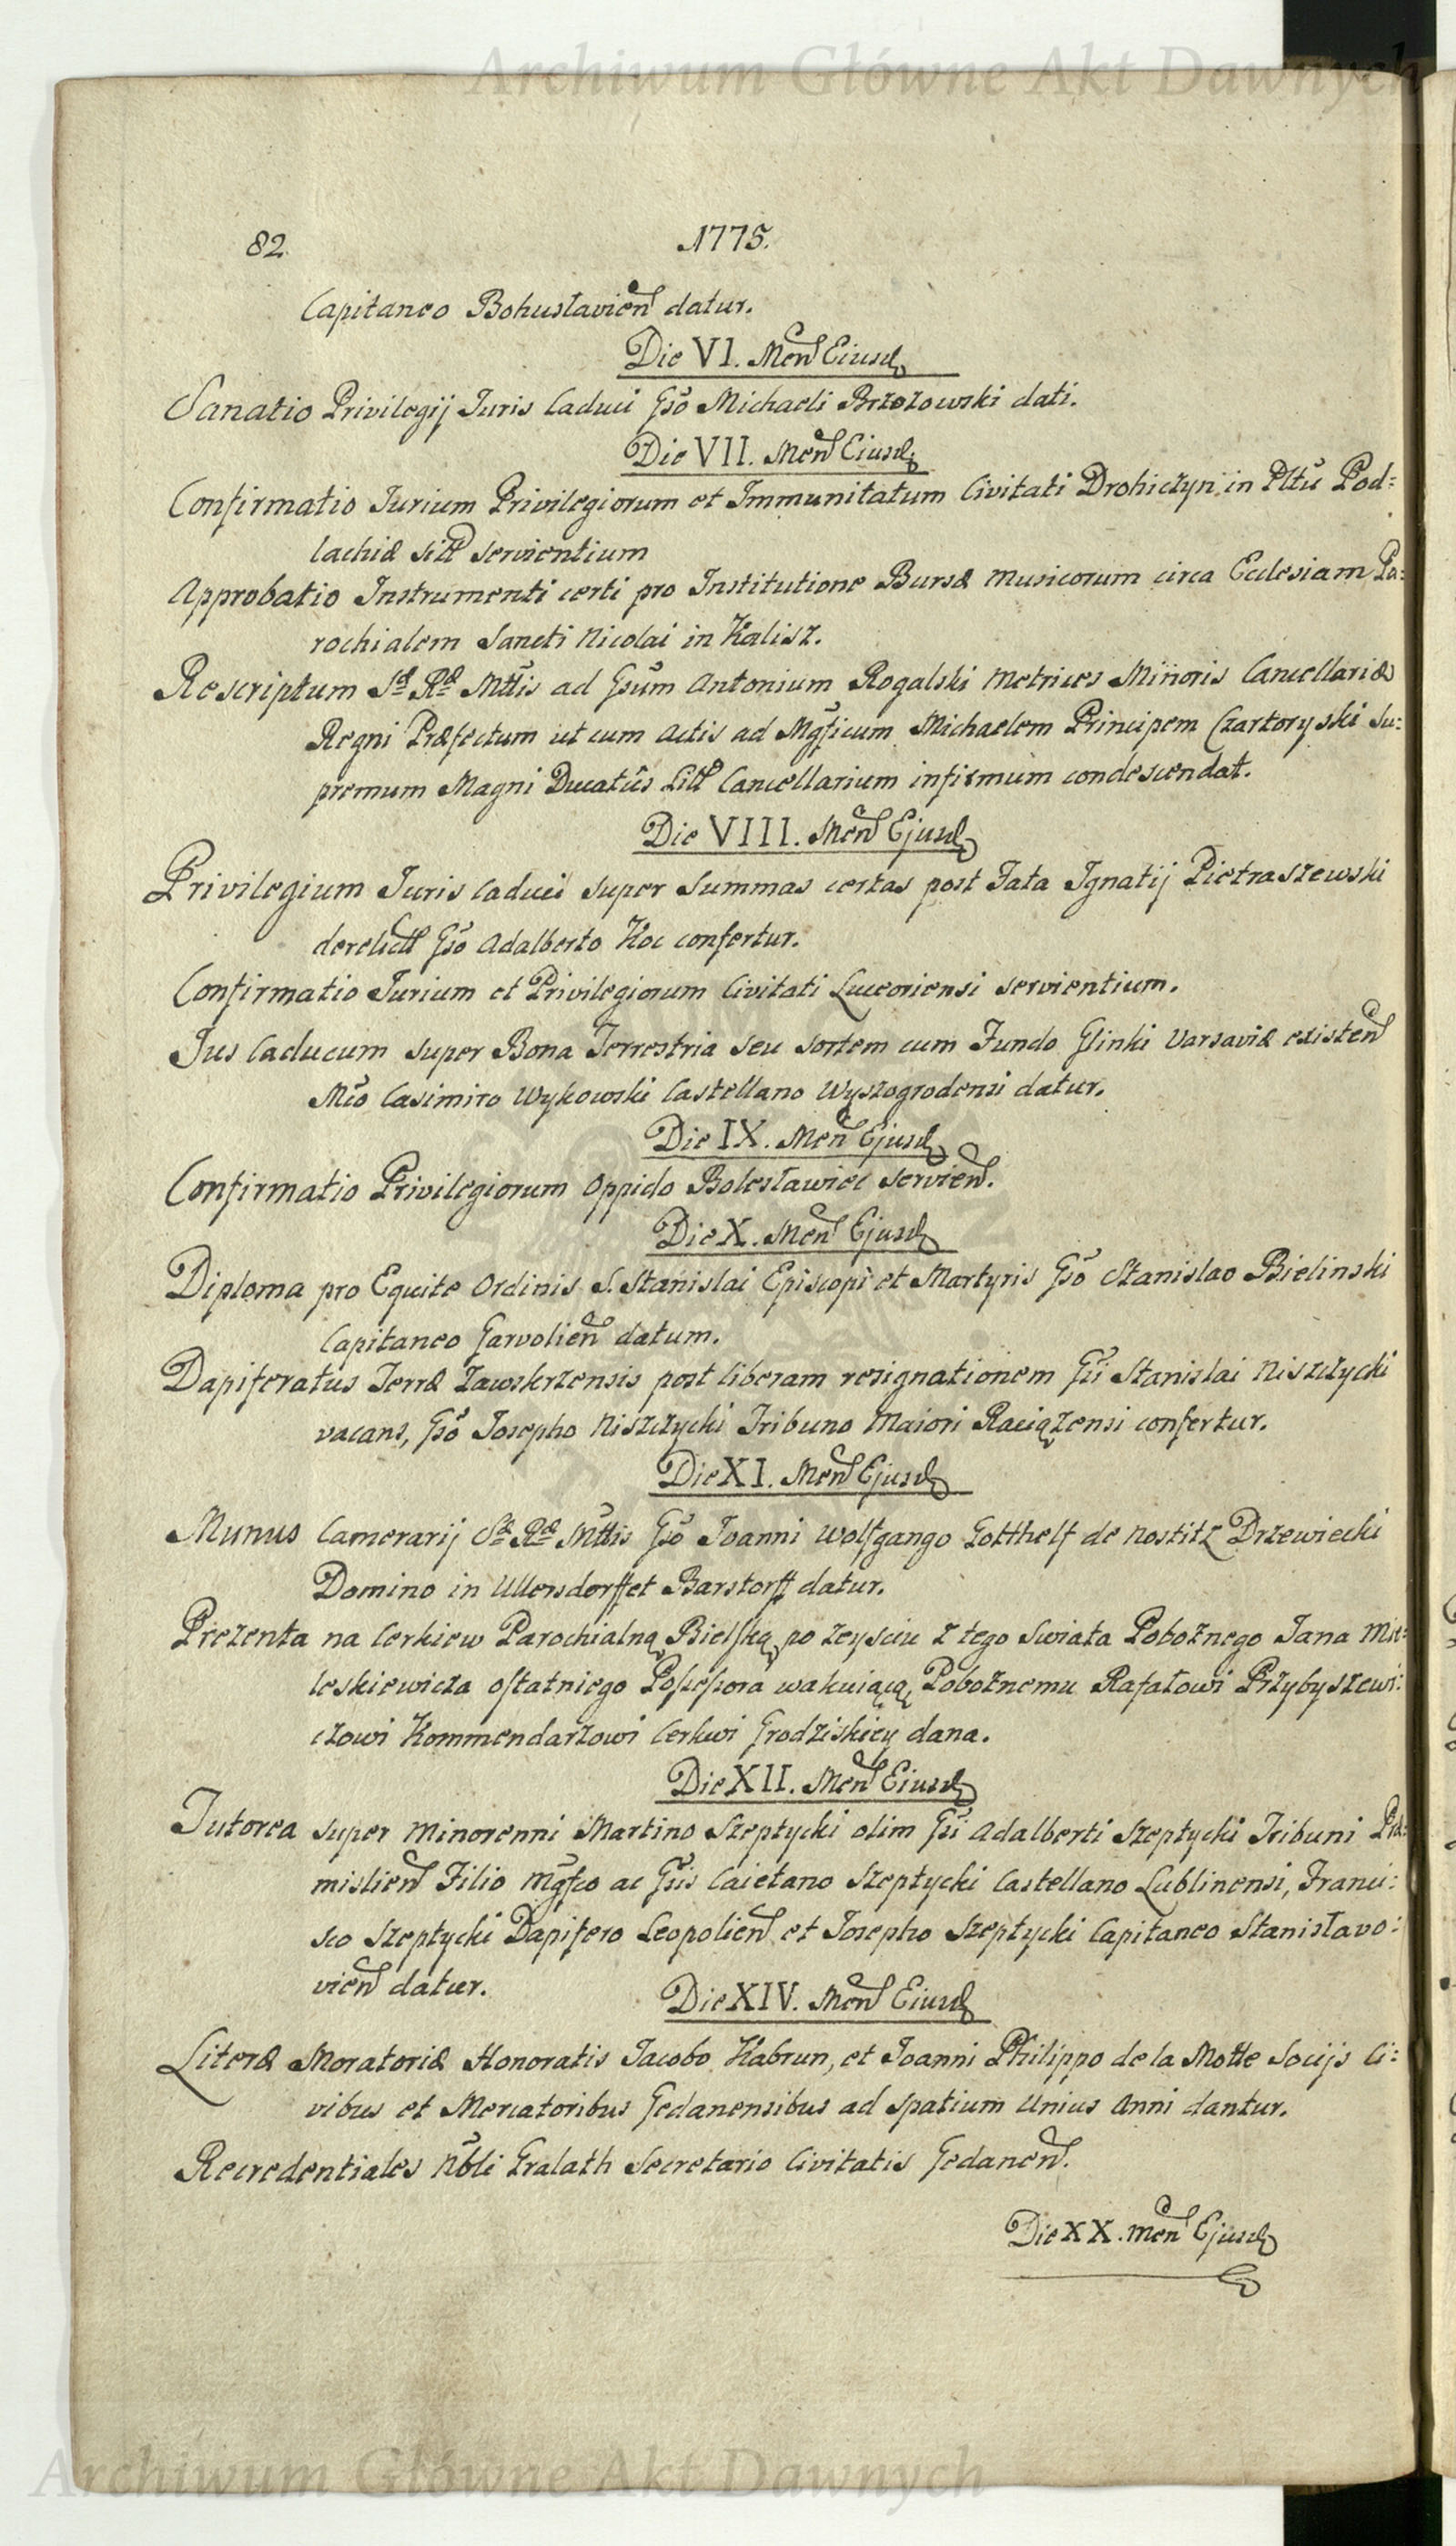 Archiwum Główne Akt Dawnych
82. 1775.
Capitaneo Bohuslavień datur.
Die VI. Meń Eiusd
Sanatio Privilegij Juris Caduci Gso Michaeli Brzozowski dati.
Die VII. Meń Eiusd
Confirmatio Jurium Privilegiorum et Immunitatum Civitati Drohiczyn in Pltu Pod=
lachiæ sitt servientium
Approbatio Instrumenti certi pro Institutione Bursæ Musicorum circa Ecclesiam Pa:
rochialem Sancti Nicolai in Kalisz.
Rescriptum Sæ Ræ Mttis ad Gsum Antonium Rogalski Metrices Minoris Cancellariæ
Regni Præfectum ut cum Actis ad Mgficum Michaelem Principem Czartoryski Su:
premum Magni Ducatûs Litt Cancellarium infirmum condescendat.
Die VIII. Meń Ejusd
Privilegium Juris Caduci super Summas certas post Fata Ignatij Pietraszewski
derelictt Gso Adalberto Koc confertur.
Confirmatio Jurium et Privilegiorum Civitati Luceoriensi servientium.
Jus Caducum super Bona Terrestria seu sortem cum Fundo Glinki Varsaviæ existeń
Mco Casimiro Wykowski Castellano Wyszogrodensi datur.
Die IX. Meń Ejusd
Confirmatio Privilegiorum Oppido Bolesławiec servień.
Die X. Meń Ejusd
Diploma pro Equite Ordinis S. Stanislai Episcopi et Martyris Gso Stanislao Bielinski
Capitaneo Garvolień datum.
Dapiferatus Terræ Zawskrzensis post liberam resignationem Gsi Stanislai Niszczycki
vacans, Gso Josepho Niszczycki Tribuno Maiori Raciązensi confertur.
Die XI. Meń Ejusd
Munus Camerarij Sæ Ræ Mttis Gso Joanni Wolfgango Gotthelf de Nostitz Drzewiecki
Domino in Ullersdorff et Barstorff datur.
Prezenta na Cerkiew Parochialną Bielską po zeysciu z tego Swiata Pobożnego Jana Mie:
leskiewicza ostatniego Possessora wakuiącą Pobożnemu Rafałowi Przybyszewi:
czowi Kommendarzowi Cerkwi Grodziskiey dana.
Die XII. Meń Eiusd
Tutorea super Minorenni Martino Szeptycki olim Gsi Adalberti Szeptycki Tribuni Præ:
mislień Filio Mgfco ac Gsis Caietano Szeptycki Castellano Lublinensi, Franci:
sco Szeptycki Dapifero Leopolień et Josepho Szeptycki Capitaneo Stanisławo:
vień datur.
Die XIV. Meń Eiusd
Literæ Moratoriæ Honoratis Jacobo Kabrun, et Joanni Philippo de la Motte Socijs Ci:
vibus et Mercatoribus Gedanensibus ad Spatium Unius Anni dantur.
Recredentiales Nbli Gralath Secretario Civitatis Gedaneń.
Die XX. Meń Ejusd
Archiwum Główne Akt Dawnych